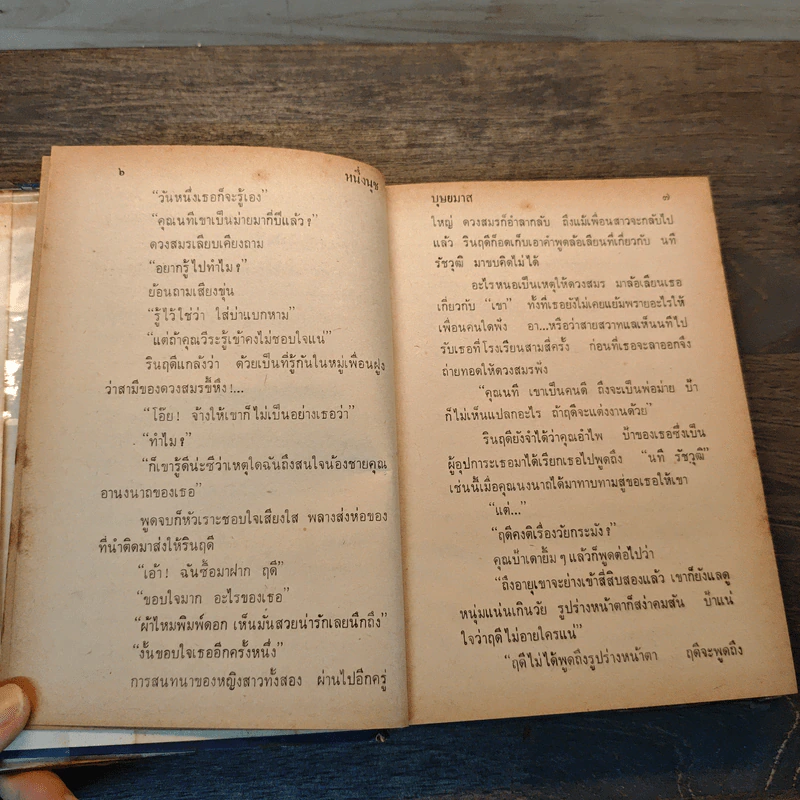 ๖
หนึ่งนุช
“วันหนึ่งเธอก็จะรู้เอง”
“คุณนทีเขาเป็นม่ายมากี่ปีแล้ว?”
ดวงสมรเลียบเคียงถาม
“อยากรู้ไปทำไม?”
ย้อนถามเสียงขุ่น
“รู้ไว้ใช่ว่า ใส่บ่าแบกหาม”
“แต่ถ้าคุณวีระรู้เข้าคงไม่ชอบใจแน่”
รินฤดีแกล้งว่า ด้วยเป็นที่รู้กันในหมู่เพื่อนฝูง
ว่าสามีของดวงสมรขี้หึง!...
“โอ๊ย! จ้างให้เขาก็ไม่เป็นอย่างเธอว่า”
“ทำไม?”
“ก็เขารู้ดีน่ะซีว่าเหตุใดฉันถึงสนใจน้องชายคุณ
อานงนาถของเธอ”
พูดจบก็หัวเราะชอบใจเสียงใส พลางส่งห่อของ
ที่นำติดมาส่งให้รินฤดี
“เอ้า! ฉันซื้อมาฝาก ฤดี”
“ขอบใจมาก อะไรของเธอ”
“ผ้าไหมพิมพ์ดอก เห็นมันสวยน่ารักเลยนึกถึง”
“งั้นขอบใจเธออีกครั้งหนึ่ง”
การสนทนาของหญิงสาวทั้งสอง ผ่านไปอีกครู่
บุษยมาส
๗
ใหญ่ ดวงสมรก็อำลากลับ ถึงแม้เพื่อนสาวจะกลับไป
แล้ว รินฤดีก็อดเก็บเอาคำพูดล้อเลียนที่เกี่ยวกับ นที
รัชวุฒิ มาขบคิดไม่ได้
อะไรหนอเป็นเหตุให้ดวงสมร มาล้อเลียนเธอ
เกี่ยวกับ “เขา” ทั้งที่เธอยังไม่เคยแย้มพรายอะไรให้
เพื่อนคนใดฟัง อา...หรือว่าสายสวาทแลเห็นนทีไป
รับเธอที่โรงเรียนสามสี่ครั้ง ก่อนที่เธอจะลาออกจึง
ถ่ายทอดให้ดวงสมรฟัง
“คุณนที เขาเป็นคนดี ถึงจะเป็นพ่อม่าย ป้า
ก็ไม่เห็นแปลกอะไร ถ้าฤดีจะแต่งงานด้วย”
รินฤดียังจำได้ว่าคุณอำไพ ป้าของเธอซึ่งเป็น
ผู้อุปการะเธอมาได้เรียกเธอไปพูดถึง “นที รัชวุฒิ”
เช่นนี้เมื่อคุณนงนาถได้มาทาบทามสู่ขอเธอให้เขา
“แต่...”
“ฤดีคงติเรื่องวัยกระมัง?”
คุณป้าเดายิ้มๆ แล้วก็พูดต่อไปว่า
“ถึงอายุเขาจะย่างเข้าสี่สิบสองแล้ว เขาก็ยังแลดู
หนุ่มแน่นเกินวัย รูปร่างหน้าตาก็สง่าคมสัน ป้าแน่
ใจว่าฤดีไม่อายใครแน่”
“ฤดีไม่ได้พูดถึงรูปร่างหน้าตา ฤดีจะพูดถึง